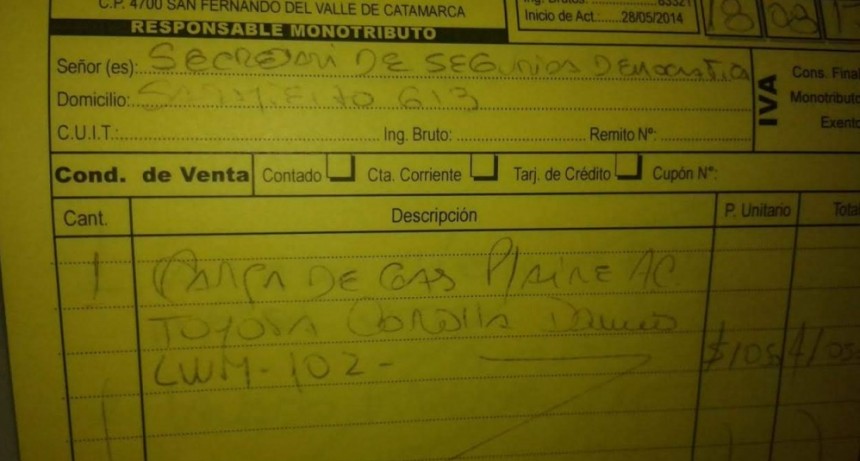 C.P. 4700 SAN FERNANDO DEL VALLE DE CATAMARCA
RESPONSABLE MONOTRIBUTO
Inicio de Act.: 28/05/2014
18 08 17
Señor (es): SECRETARI DE SEGURIDAD DEMOCRATICA
Domicilio: SARMIENTO 613
C.U.I.T.: Ing. Bruto: Remito Nº:
IVA
Cons. Final
Monotributo
Exento
Cond. de Venta Contado Cta. Corriente Tarj. de Crédito Cupón Nº:
Cant. Descripción P. Unitario Total
1 CARGA DE GAS P/AIRE AC.
TOYOTA COROLLA DOMINIO
LWM-102-